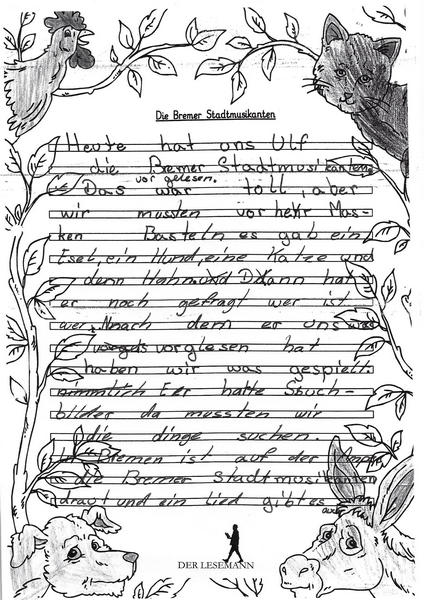 Die Bremer Stadtmusikanten
Heute hat uns Ulf
die Bremer Stadtmusikanten
vor gelesen.
Das war toll, aber
wir mussten vorhehr Mas-
ken Basteln es gab ein
Esel, ein Hund, eine Katze und
denn Hahn. Dann hat
er noch gefragt wer ist
wer. Nach dem er uns was
vorglesen hat
haben wir was gespielt.
Er hatte Such-
bilder da mussten wir
die dinge suchen.
In Bremen ist auf der
die Bremer Stadtmusikanten
drauf und ein Lied gibt es
auch
DER LESEMANN